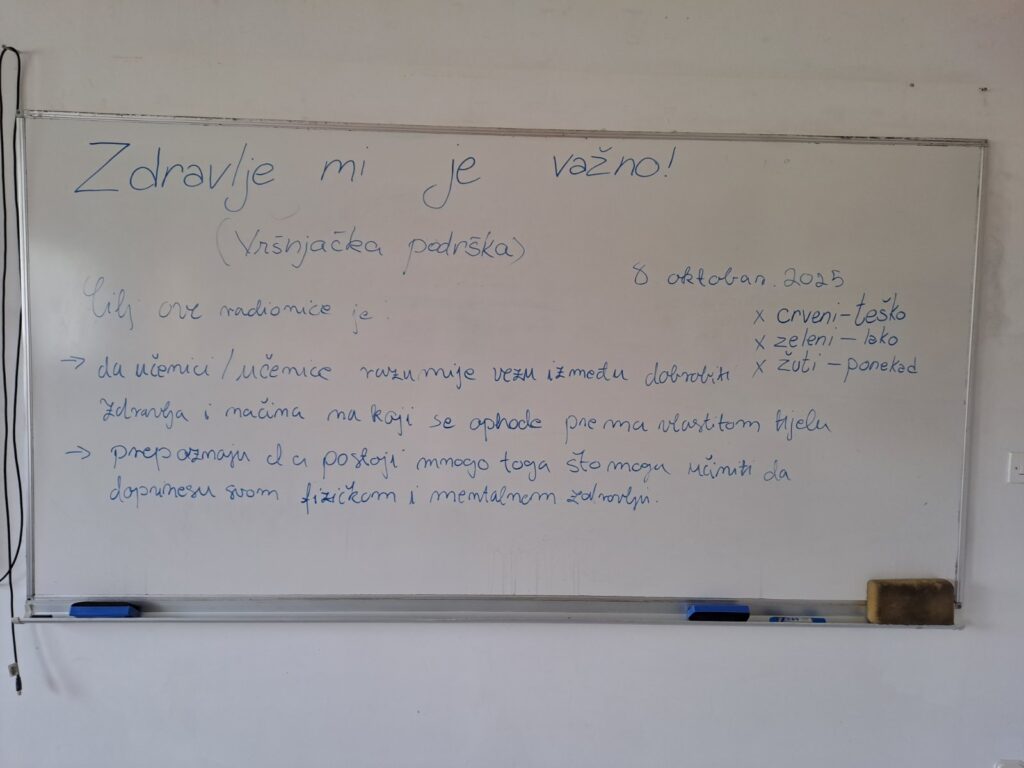 Zdravlje mi je važno!
(Vršnjačka podrška)
8 oktobar. 2025
Cilj ove radionice je:
x crveni - teško
x zeleni - lako
x žuti - ponekad
→ da učenici / učenice razumije vezu između dobrobiti
zdravlja i načina na koji se ophode prema vlastitom tijelu
→ prepoznaju da postoji mnogo toga što mogu učiniti da
doprinesu svom fizičkom i mentalnom zdravlju.